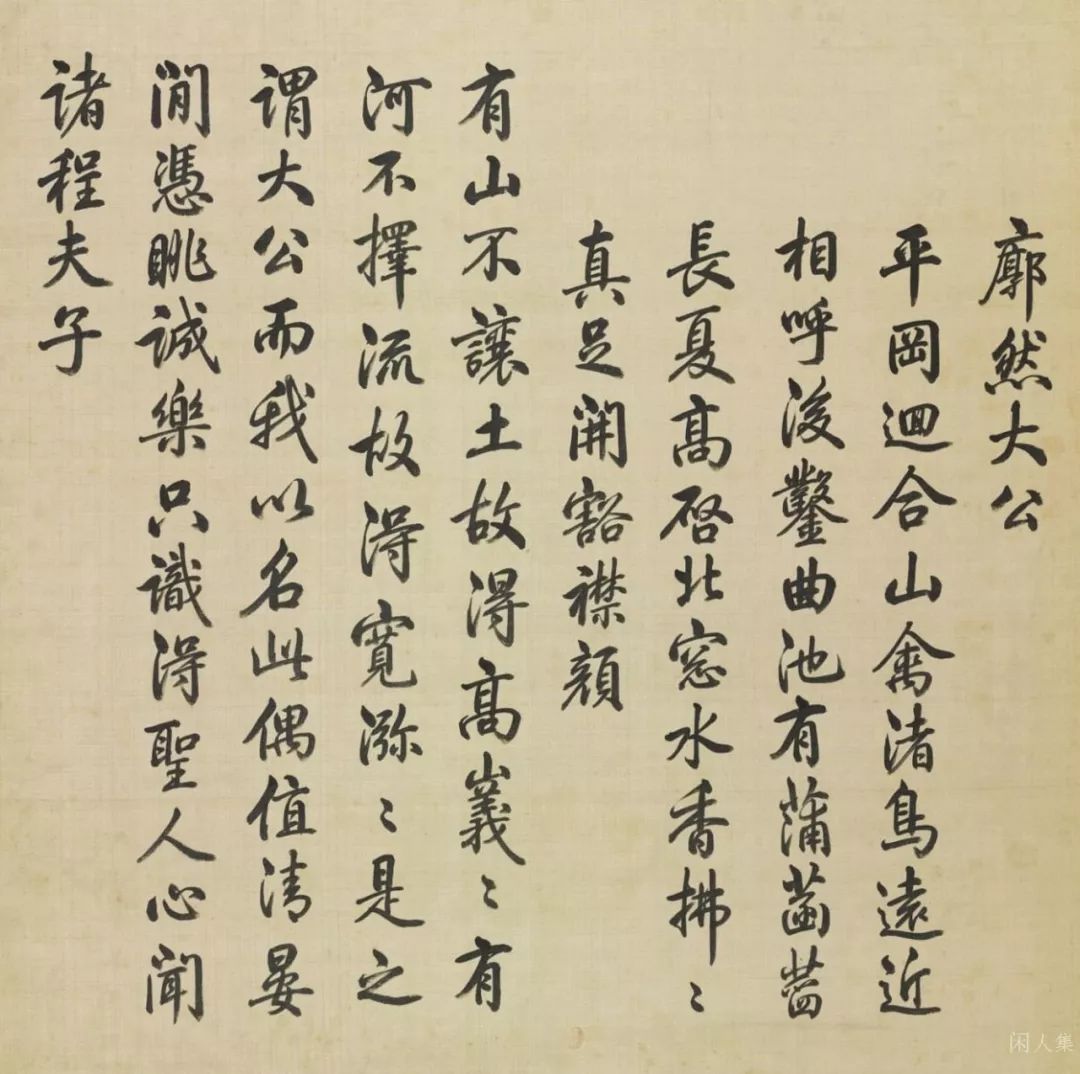 廓然大公
平岡迴合山禽渚鳥遠近
相呼後鑿曲池有蒲菡萏
長夏高啓北窓水香拂〻
真足開豁襟顔
有山不讓土故得高嶪〻有
河不擇流故得寬瀰〻是之
謂大公而我以名此偶值清晏
閒憑眺誠樂只識得聖人心聞
諸程夫子
闲人集